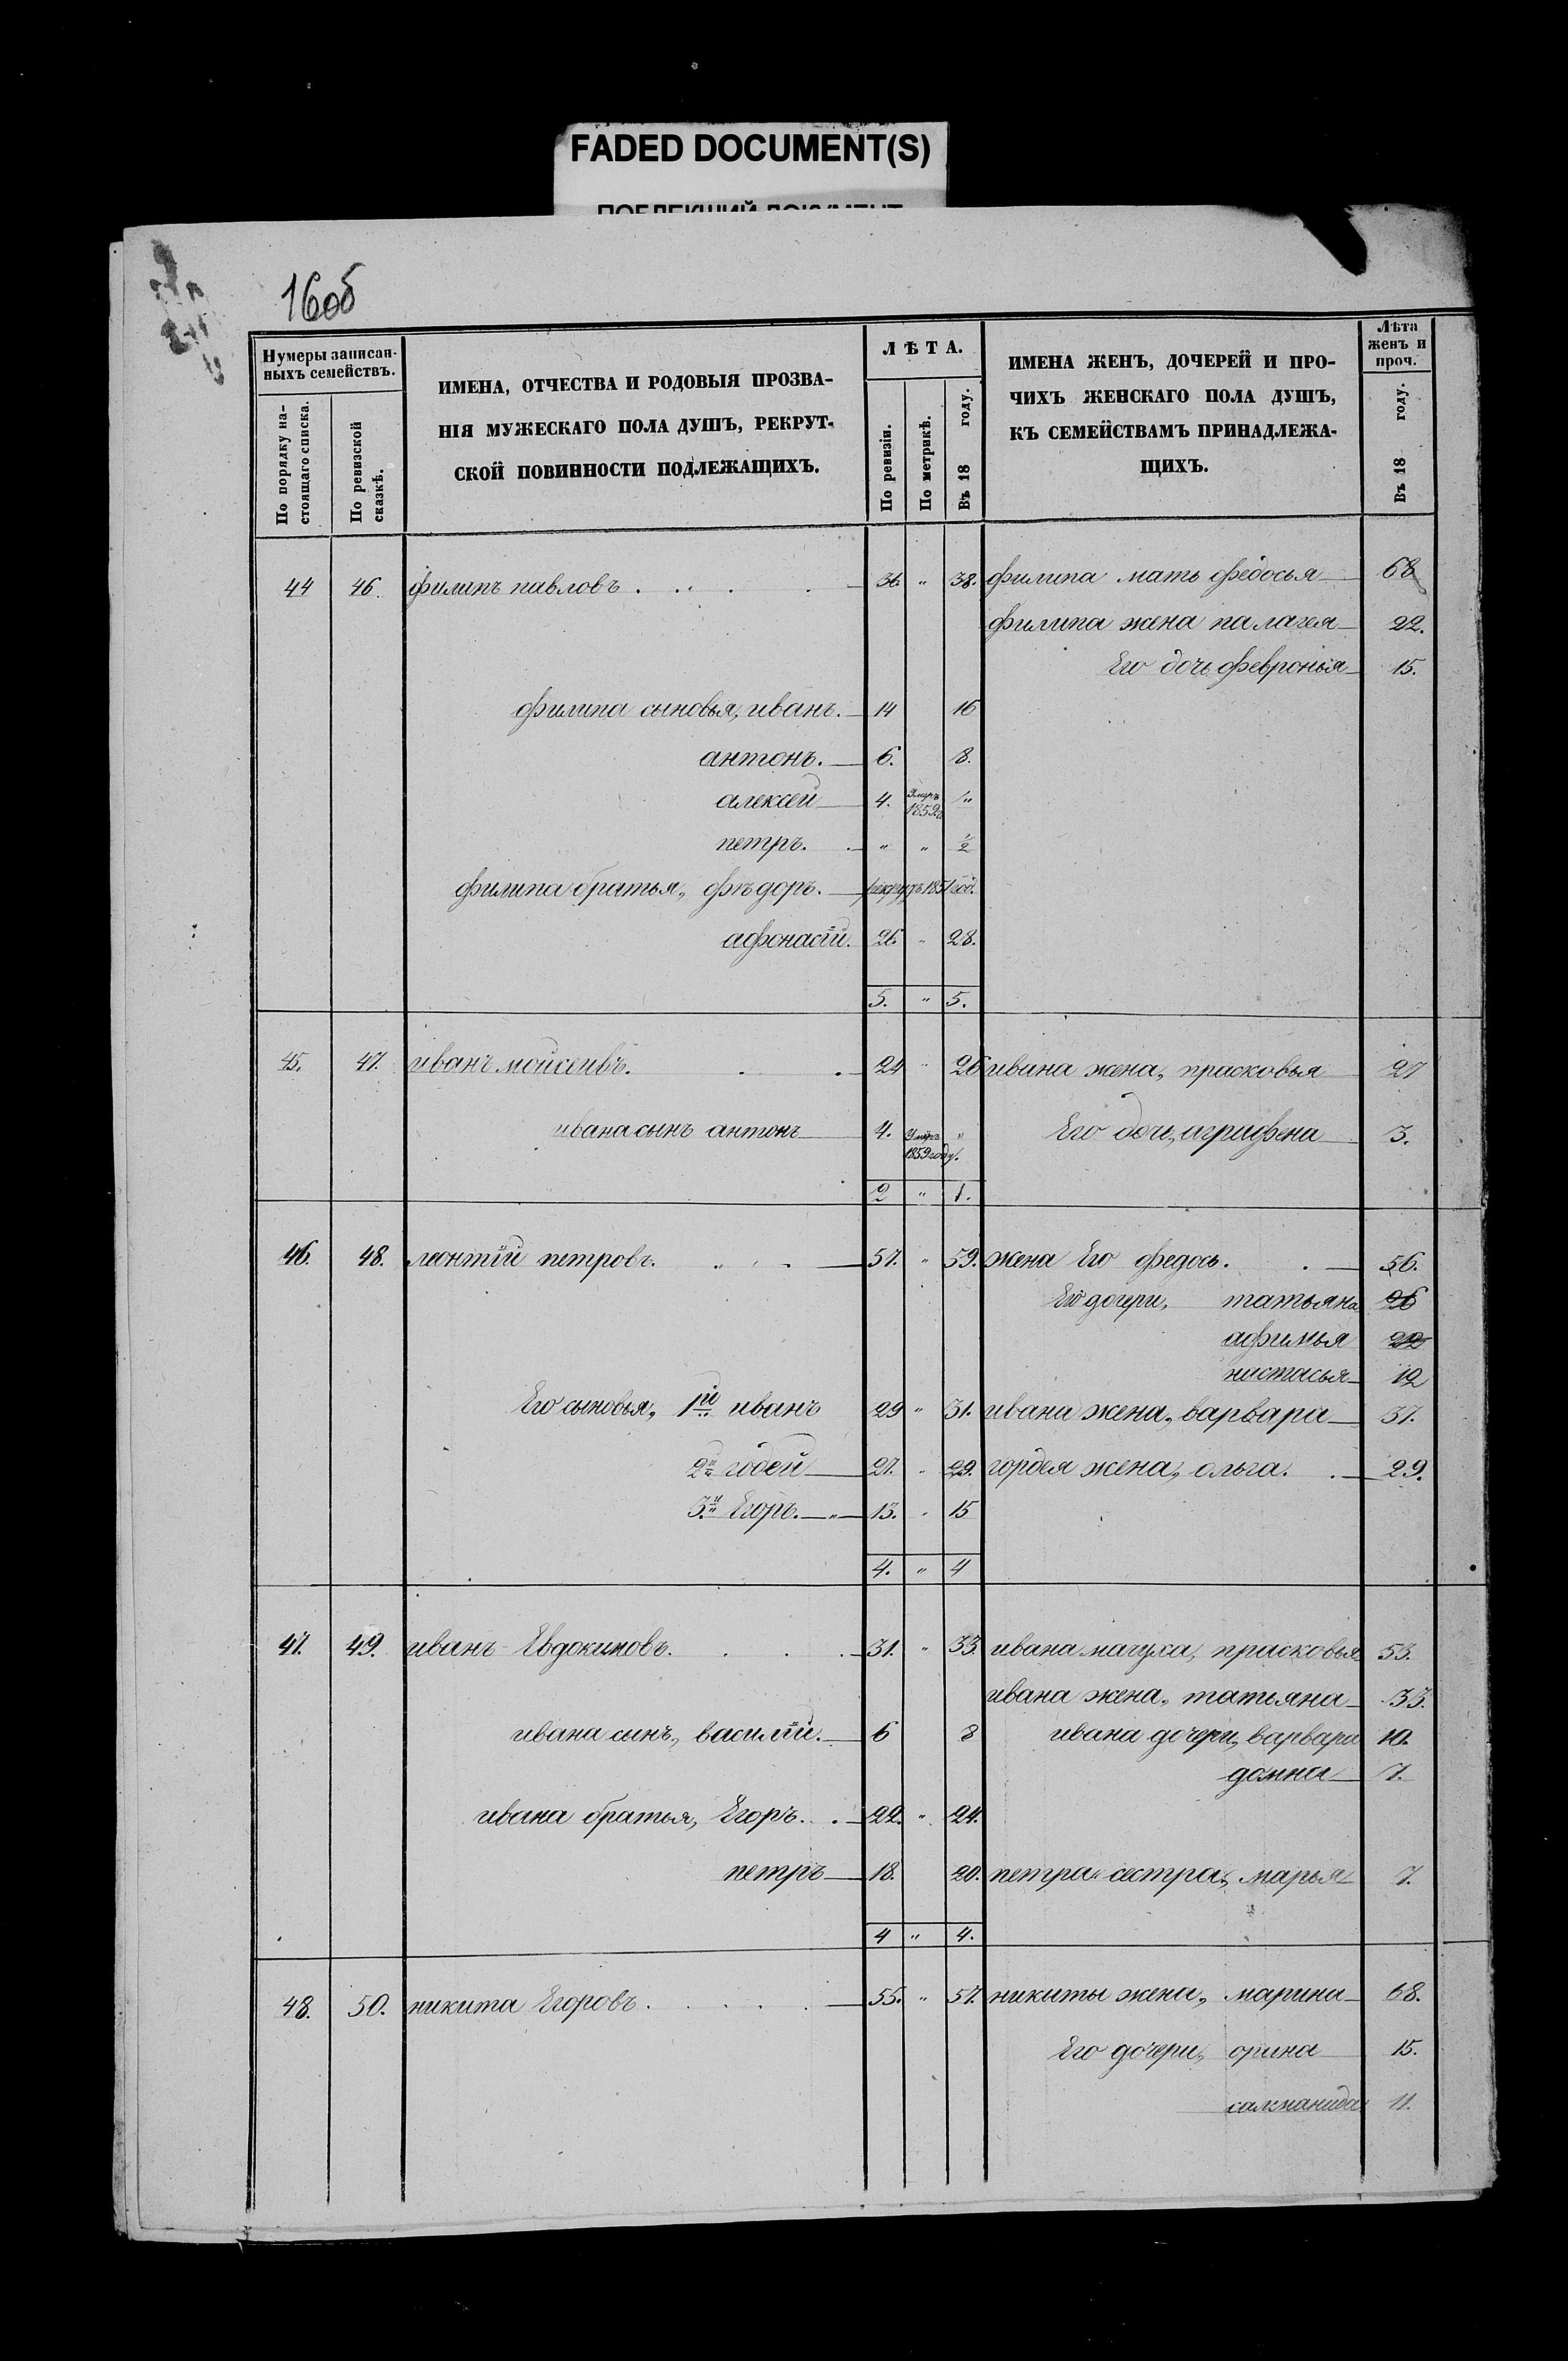 FADED DOCUMENT(S)
ПОБЛЕКШИЙ ДОКУМЕНТ
16об
Нумеры записан-
ныхъ семействъ.
По порядку на-
стоящаго списка.
По ревизской
сказкѣ.
ИМЕНА, ОТЧЕСТВА И РОДОВЫЯ ПРОЗВА-
НІЯ МУЖЕСКАГО ПОЛА ДУШЪ, РЕКРУТ-
СКОЙ ПОВИННОСТИ ПОДЛЕЖАЩИХЪ.
ЛѢТА.
По ревизіи.
По метрикѣ.
Въ 18 году.
ИМЕНА ЖЕНЪ, ДОЧЕРЕЙ И ПРО-
ЧИХЪ ЖЕНСКАГО ПОЛА ДУШЪ,
КЪ СЕМЕЙСТВАМЪ ПРИНАДЛЕЖА-
ЩИХЪ.
Лѣта
женъ и
проч.
Въ 18 году.
44 46. филипъ павловъ . . . . . 36. " 38. филипа мать федосья 68
филипа жена палагея 22.
Его дочь февронья 15.
филипа сыновья, иванъ. 14 16
антонъ. 6. 8.
алексей 4. Умеръ 1859г. "
петръ. " " 1/2
филипа братья, фѣдоръ. рекрутъ 1851 год.
афонасій. 26 " 28.
5. " 5.
45. 47. иванъ мойсеивъ. . . 24 " 26 ивана жена, прасковья 27
ивана сынъ антонъ 4. Умеръ 1859 году. " Его дочь, аграфена 3.
2 " 1.
46. 48. леонтій петровъ. 57. " 59. жена Его федось. . 56.
Его дочери, татьяна 26
афимья 22
настасья 12
Его сыновья, 1й иванъ 29 " 31. ивана жена, варвара 37.
2й годей 27. " 29. гордея жена, ольга. . 29.
3й Егоръ. " 13. " 15
4. " 4
47. 49. иванъ Евдокимовъ. . . . 31. " 33. ивана мачуха, прасковья 53.
ивана жена, татьяна 33.
ивана сынъ, василій. 6 8 ивана дочери, варвара 10.
домна 7.
ивана братья, Егоръ. . 22. " 24.
петръ 18. 20. петра сестра, марья 7.
4 " 4.
48. 50. никита Егоровъ . . . . . 55. " 57. никиты жена, марина 68.
Его дочери, орина 15.
саломанида 11.